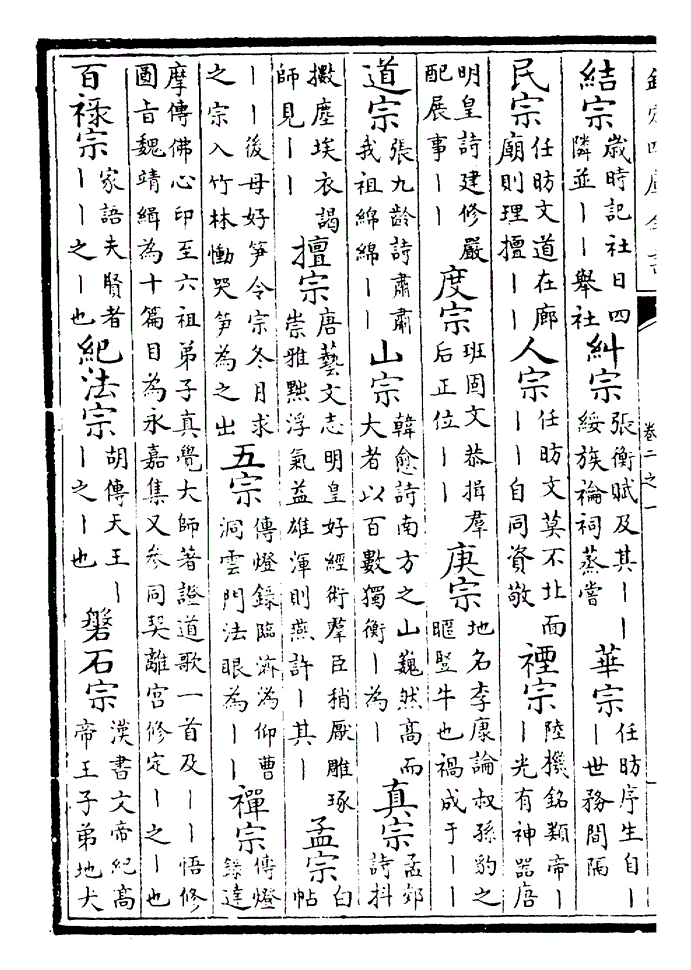 欽定四庫全書 卷二之一
結宗 歲時記社日四隣並丨丨舉社 糾宗 張衡賦及其丨丨綏族禴祠蒸嘗 華宗 任昉序生自丨丨世務間隔
民宗 任昉文道在廊廟則理擅丨丨 人宗 任昉文莫不北面丨丨自同資敬 禋宗 陸機銘類帝丨丨光有神器唐
明皇詩建修嚴配展事丨丨 度宗 班固文恭揖羣后正位丨丨 庚宗 地名李康論叔孫豹之暱豎牛也禍成于丨丨
道宗 張九齡詩肅肅我祖綿綿丨丨 山宗 韓愈詩南方之山巍然高而大者以百數獨衡丨為丨 真宗 孟郊詩抖
擻塵埃衣謁師見丨丨 擅宗 唐藝文志明皇好經術羣臣稍厭雕琢崇雅黜浮氣益雄渾則燕許丨其丨 孟宗 白帖
丨丨後母好笋令宗冬月求之宗入竹林慟哭笋為之出 五宗 傳燈錄臨濟為仰曹洞雲門法眼為丨丨 禪宗 傳燈錄達
摩傳佛心印至六祖弟子真覺大師著證道歌一首及丨丨悟修圓旨魏靖緝為十篇目為永嘉集又參同契離宮修定丨之丨也
百祿宗 家語夫賢者丨丨之丨也 紀法宗 胡傳天王丨丨之丨也 磐石宗 漢書文帝紀高帝王子弟地犬